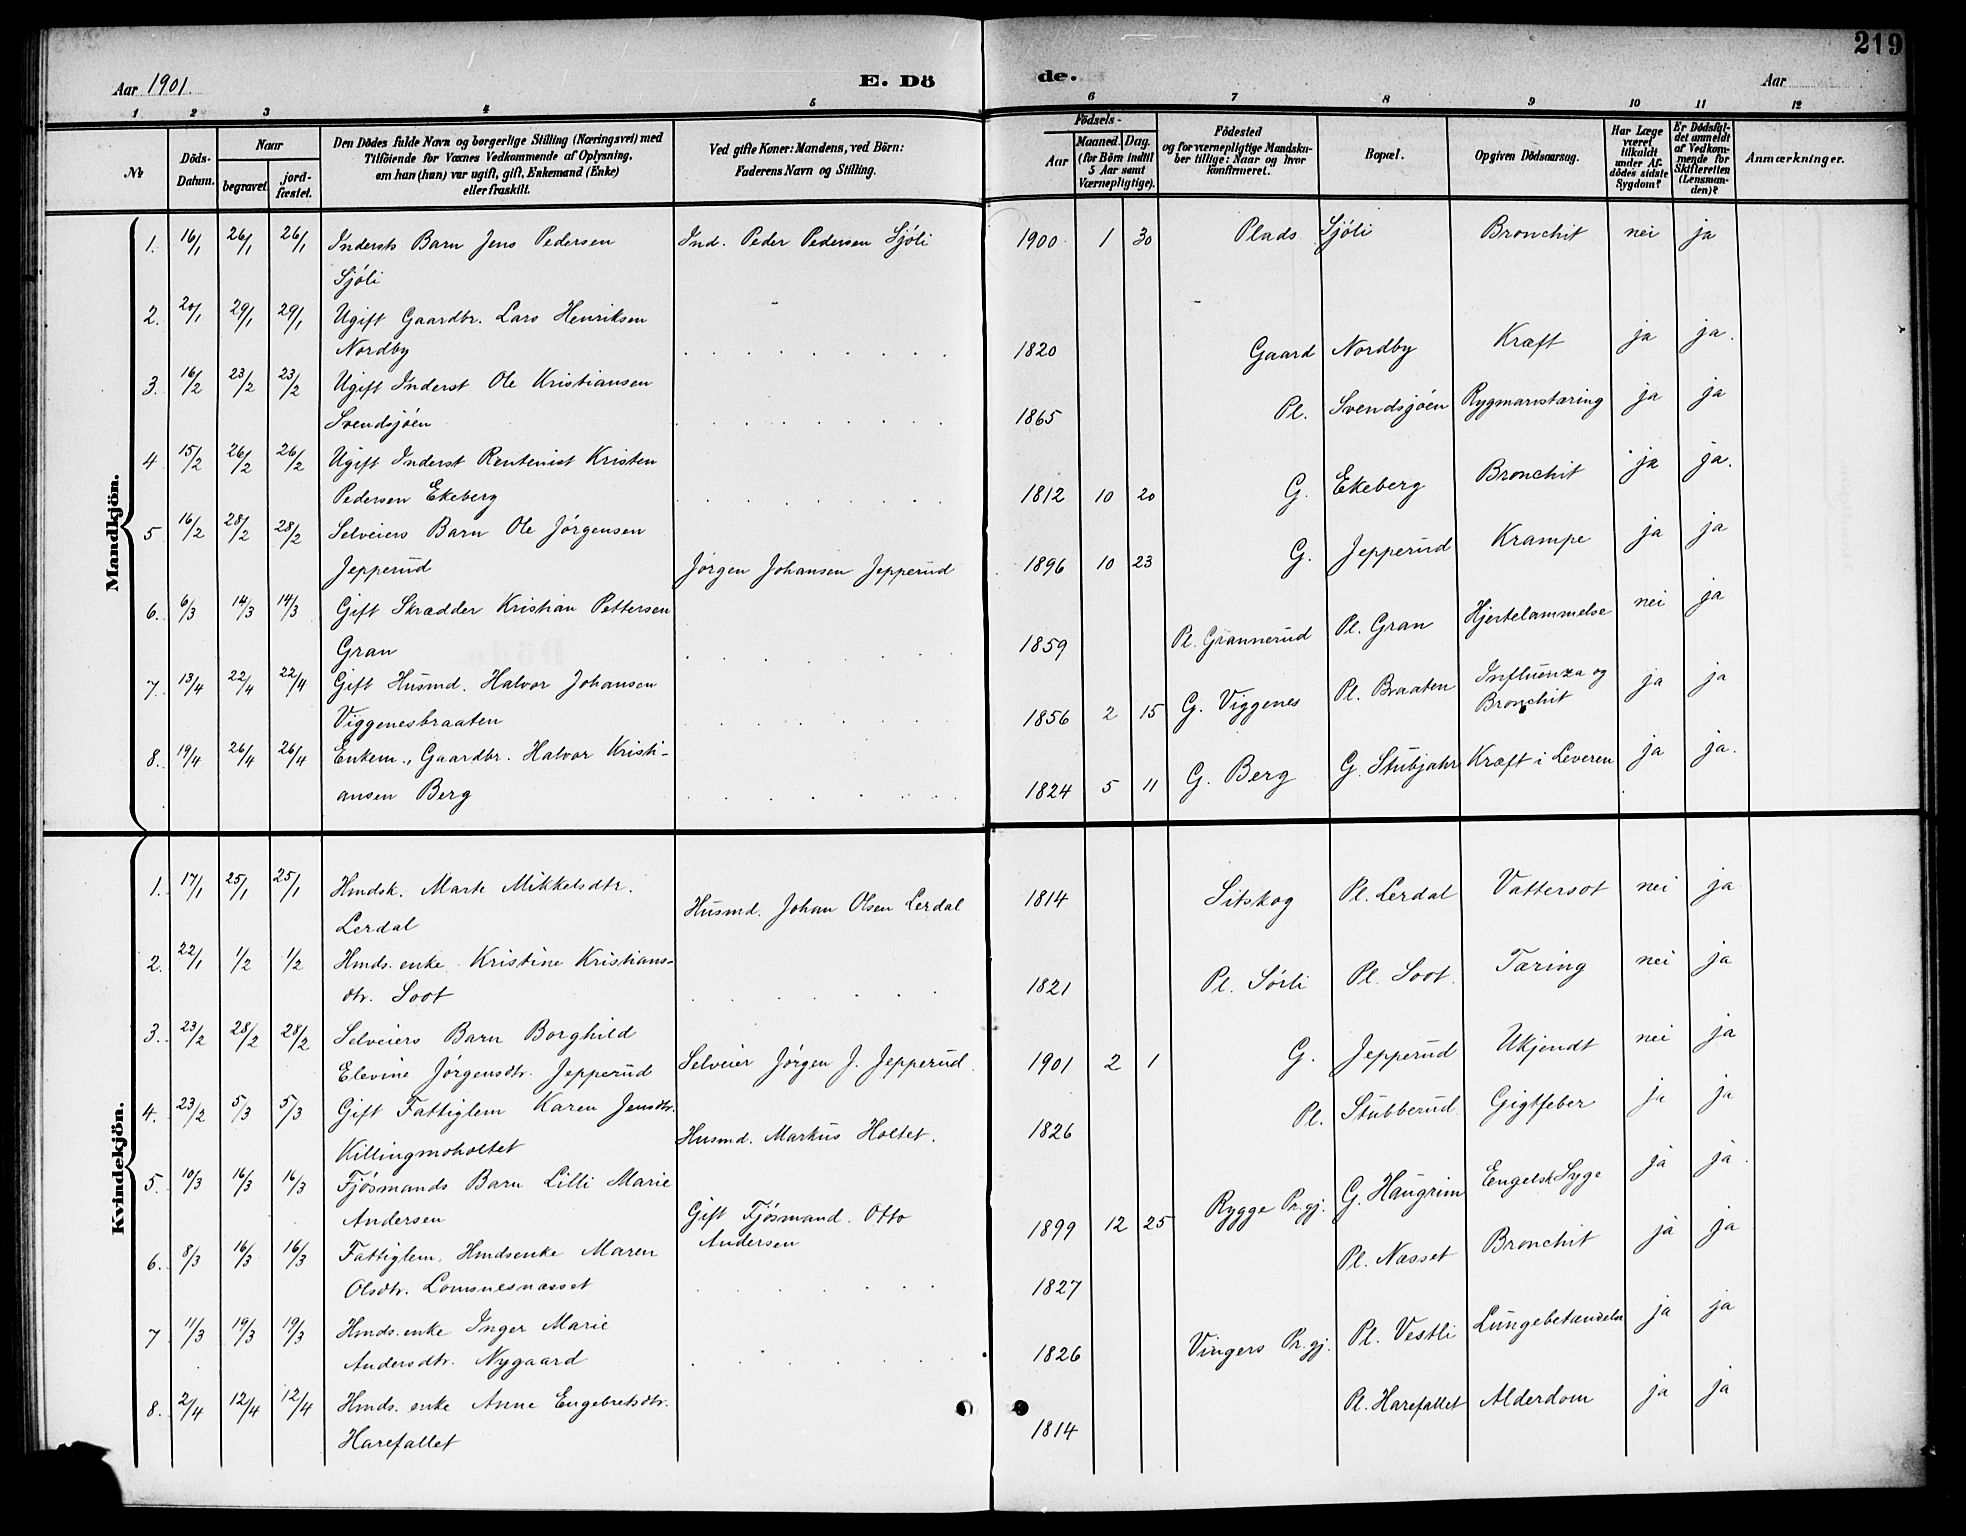 219
Aar 1901.
E. Dö de.
Aar
1 2 3 4 5 6 7 8 9 10 11 12
No
Döds-Datum.
Naar
begravet
jordfæstet.
Den Dödes fulde Navn og borgerlige Stilling (Næringsvei) med
Tilföiende for Voxnes Vedkommende af Oplysning,
om han (hun) var ugift, gift, Enkemand (Enke)
eller fraskilt.
Ved gifte Koner: Mandens, ved Börn:
Faderens Navn og Stilling.
Födsels-
Aar
Maaned. Dag.
(for Börn indtil
5 Aar samt
Værnepligtige).
Födested
og for værnepligtige Mandskaber tillige: Naar og hvor
konfirmeret.
Bopæl.
Opgiven Dödsaarsag.
Har Læge
været
tilkaldt
under Afdödes sidste
Sygdom?
Er Dödsfaldet anmeldt
af Vedkommende for
Skifteretten
(Lensmanden)?
Anmærkninger.
Mandkjön.
1. 16/1 26/1 26/1 Inderst's Barn Jens Pedersen Ind. Peder Pedersen Sjöli 1900 1 30 Plads Sjöli Bronchit nei ja
Sjöli
2. 20/1 29/1 29/1 Ugift Gaardbr. Lars Henriksen
Nordby 1820 Gaard Nordby Kræft ja ja.
3. 16/2 23/2 23/2 Ugift Inderst Ole Kristiansen
Svendsjöen 1865 Pl. Svendsjöen Rygmarvstæring ja ja
4 15/2 26/2 26/2 Ugift Inderst Rentenist Kristen
Pedersen Ekeberg 1812 10 20 G. Ekeberg Bronchit ja ja.
5 16/2 28/2 28/2 Selveiers Barn Ole Jörgensen
Jepperud Jörgen Johansen Jepperud 1896 10 23 G. Jepperud Krampe ja ja
6. 6/3 14/3 14/3 Gift Skrædder Kristian Pettersen
Gran 1859 Pl. Grannerud Pl. Gran Hjertelammelse nei ja
7. 13/4 22/4 22/4 Gift Husmd. Halvor Johansen
Viggenesbraaten 1856 2 15 G. Viggenes Pl. Braaten Influenza og Bronchit ja ja
8. 19/4 26/4 26/4 Enkem., Gaardbr. Halvor Kristi-
ansen Berg 1824 5 11 G. Berg G. Stubjahr Kræft i Leveren ja ja.
Kvindekjön.
1. 17/1 25/1 25/1 Hmdsk. Marte Mikkelsdtr.
Lerdal Husmd. Johan Olsen Lerdal 1814 Sitskog Pl. Lerdal Vattersot nei ja
2. 22/1 1/2 1/2 Hmds. enke Kristine Kristians-
dtr. Soot 1821 Pl. Sörli Pl. Soot. Tæring nei ja
3. 23/2 28/2 28/2 Selveiers Barn Borghild
Elevine Jörgensdtr. Jepperud Selveier Jörgen J. Jepperud. 1901 2 1 G. Jepperud Ukjendt nei ja
4. 23/2 5/3 5/3 Gift Fattiglem Karen Jensdtr.
Killingmoholtet Husmd. Markus Holtet. 1826 Pl. Stubberud Gigtfeber ja ja
5. 10/3 16/3 16/3 Fjösmands Barn Lilli Marie
Andersen Gift Fjösmand. Otto Andersen 1899 12 25 Rygge Pr.gj. G. Haugrim Engelsk Syge ja ja.
6. 8/3 16/3 16/3 Fattiglem, Hmdsenke Maren
Olsdtr. Lomsnesnæsset 1827 Pl. Næsset Bronchit ja ja
7 11/3 19/3 19/3 Hmds. enke Inger Marie
Andersdtr. Nygaard 1826 Vingers Pr.gj. Pl. Vestli Lungebetændelse ja ja
8. 2/4 12/4 12/4 Hmds. enke Anne Engebretsdtr.
Harefallet 1814 Pl. Harefallet Alderdom ja ja